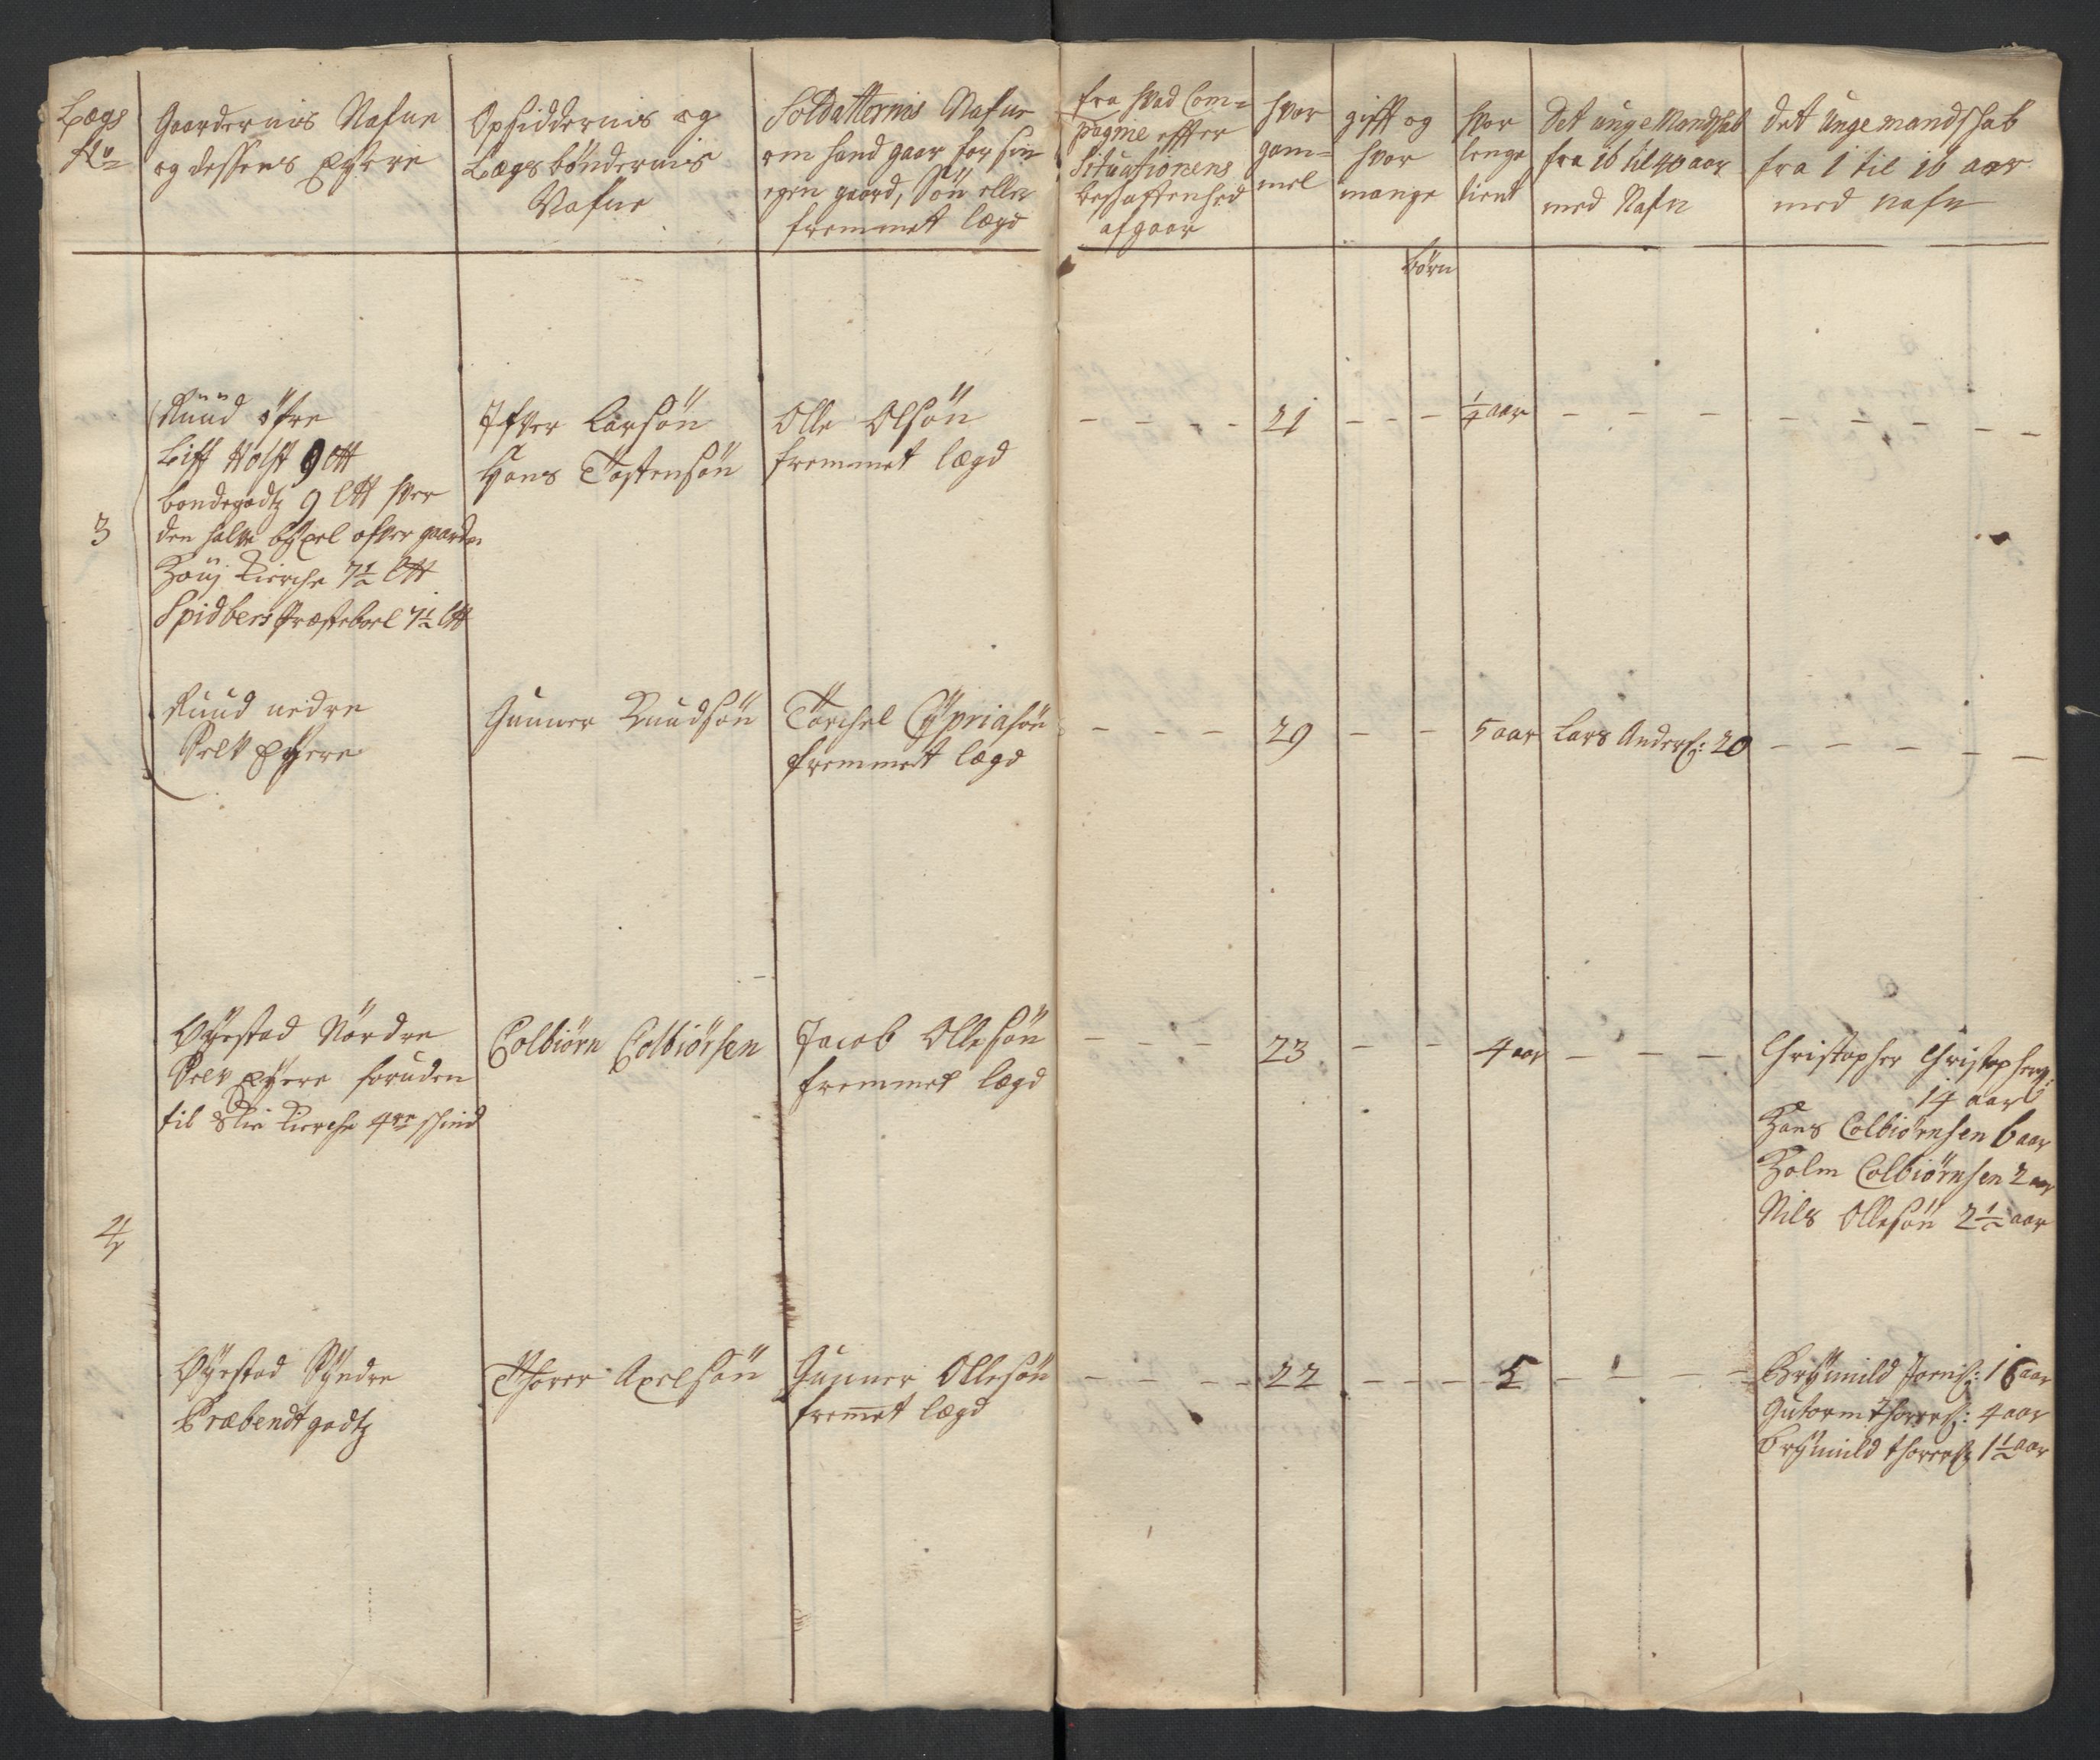 Lægs
No
Gaardernis Nafne
og dessens Eyere
Opsiddernis og
Lægsbøndernis
Nafne
Soldatternis Nafne
om hand gaar for sin
egen gaard, Søn eller
fremmet lægd
fra hvad Com=
pagnie effter
Situationens
beschaffenhed
afgaar
hvor
gam=
mel
gifft og
hvor
mange
børn
hvor
lenge
tient
det unge Mandskab
fra 16 til 40 aar
med Nafn
det Unge mandskab
fra 1 til 16 aar
med nafn
3
Ruud øfre
bondegodtz 9 L℔ hver
den halve bÿxel ofver gaarden
Kirche 7½ L℔
Spidbers Præsteboel 7½ L℔
Ifver Larsøn
Hans Tostensøn
Olle Olsøn
fremmet lægd
21
¼ aar
Ruud nedre
Selv Eÿere
Gunner Knudsøn
Torchel Cÿpriasøn
fremmet lægd
29
5 aar
Lars Anders: 20
4
Øÿestad Nordre
Selv Eÿere foruden
til Kirche 4re skind
Colbiørn Colbiørsen
Jacob Ollesøn
fremmet lægd
23
4 aar
Christopher Christophers:
14 aar
Hans Colbiørnsen 6 aar
Holm Colbiørnsen 2 aar
Nils Ollesøn 2½ aar
Øÿestad Sÿndre
Præbendtgodtz
Thorer Axelsøn
Gunner Ollesøn
fremet lægd
22
5
Brÿnnild Joens: 16 aar
Gutorm Thorers: 4 aar
Brÿnnild Thorers: 1½ aar